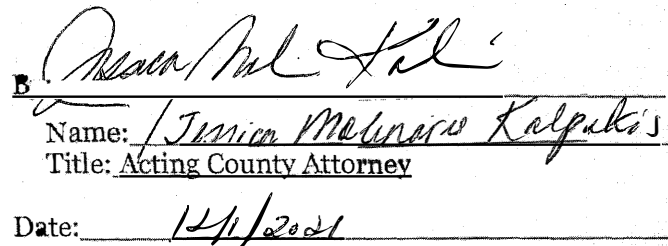 B
Name: Jessica Molinaris Kalpakis
Title: Acting County Attorney
Date: 12/1/2021